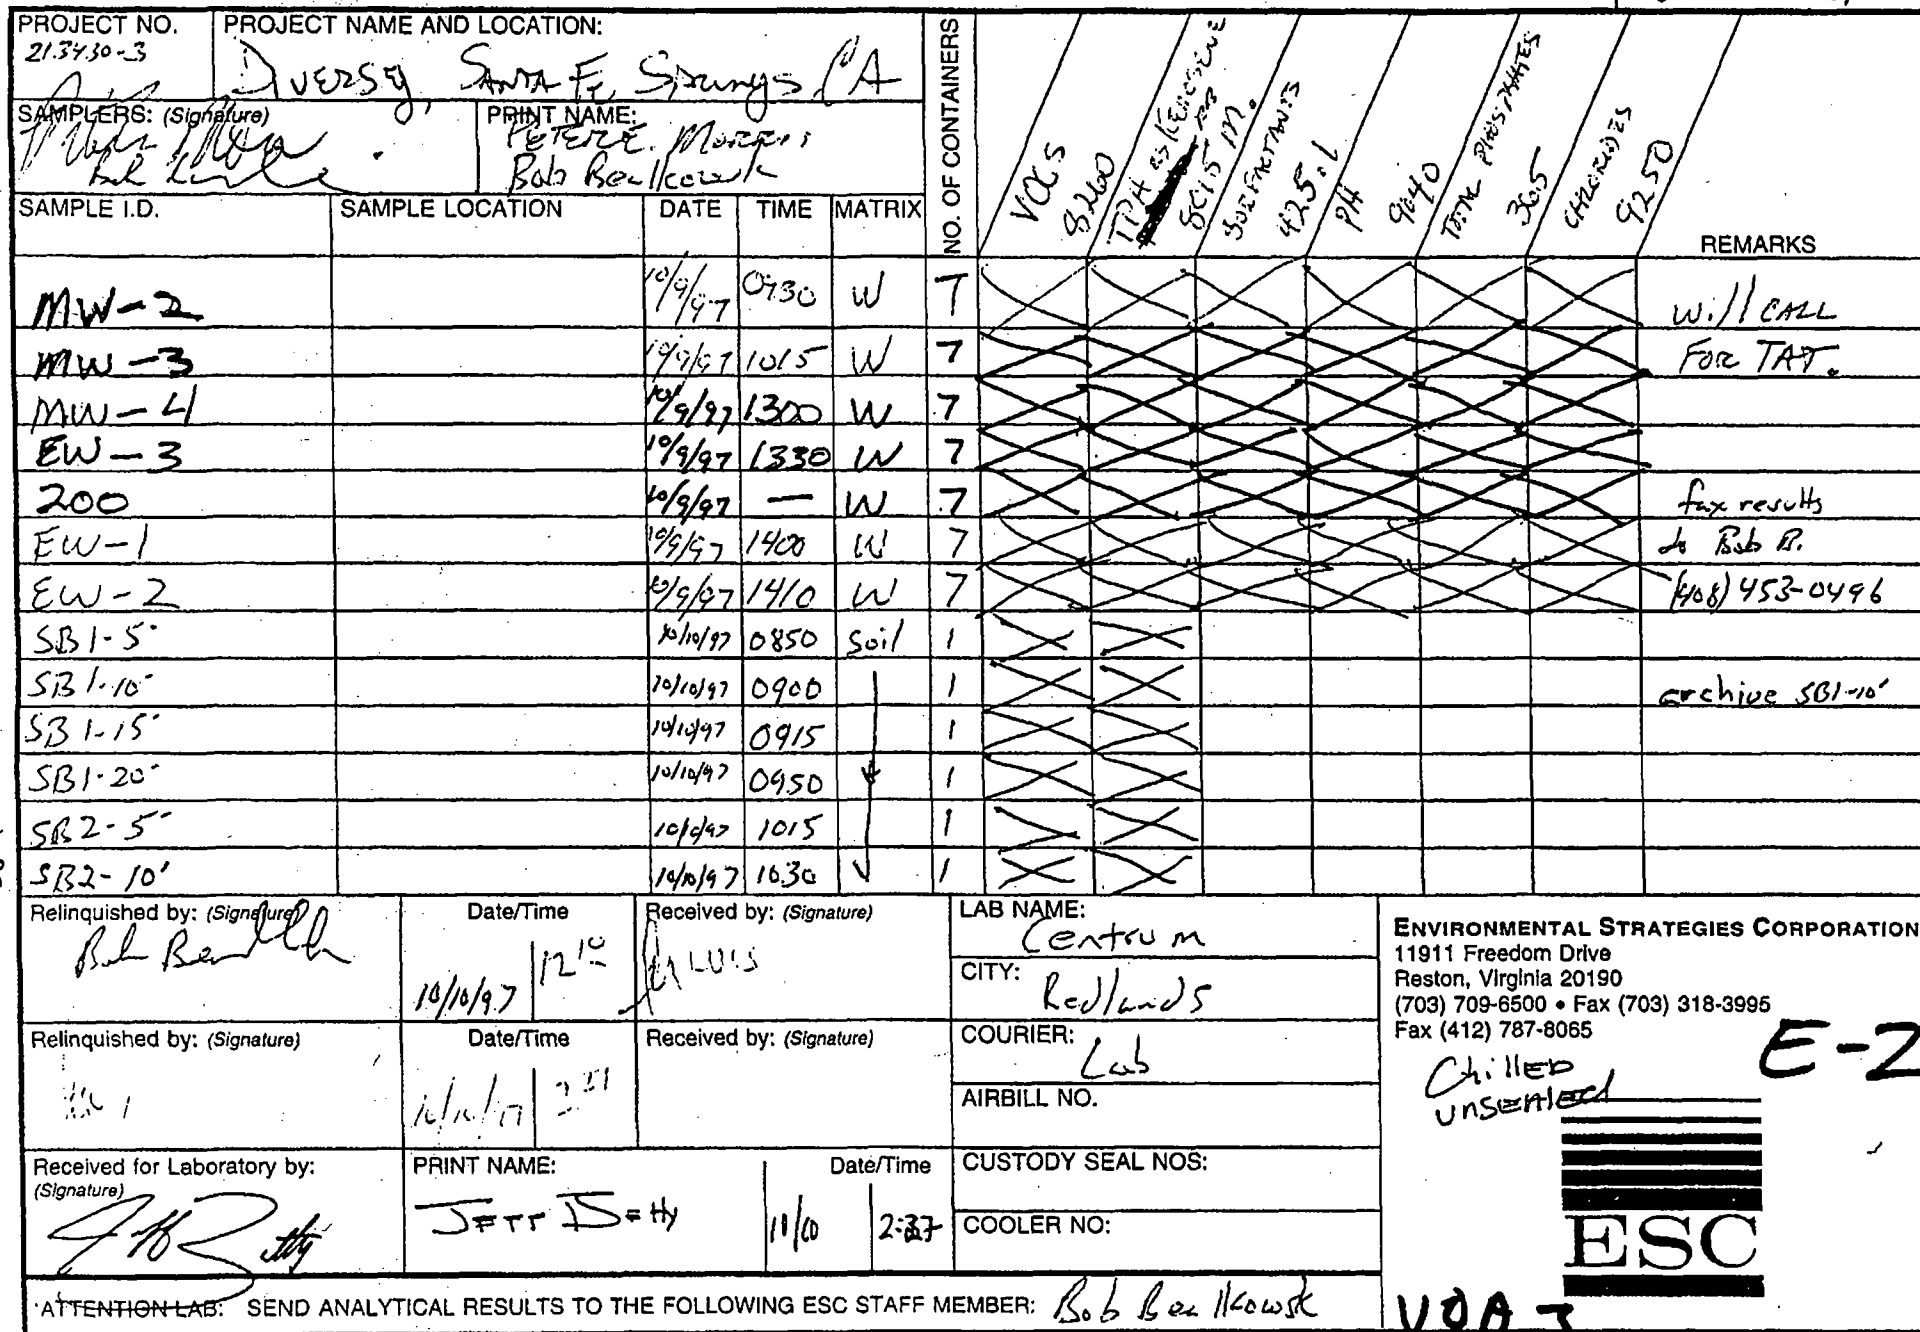 PROJECT NO.
213430-3
PROJECT NAME AND LOCATION:
Diversey, Santa Fe Springs CA
SAMPLERS: (Signature)
PRINT NAME:
PETER E. Morris
Bob
NO. OF CONTAINERS
VOCS 8260
TPH as Kerosene 8015 M.
SURFACTANTS 425.1
PH 9040
TOTAL PHOSPHATES 365
CHLORIDES 9250
SAMPLE I.D. SAMPLE LOCATION DATE TIME MATRIX REMARKS
MW-2 10/9/97 0930 W 7 Will CALL
MW-3 10/9/97 1015 W 7 FOR TAT.
MW-4 10/9/97 1300 W 7
EW-3 10/9/97 1330 W 7
200 10/9/97 — W 7 fax results
EW-1 10/9/97 1400 W 7 to Bob B.
EW-2 10/9/97 1410 W 7 (408) 453-0496
SB1-5' 10/10/97 0850 Soil 1
SB1-10' 10/10/97 0900 1 archive SB1-10'
SB1-15' 10/10/97 0915 1
SB1-20' 10/10/97 0950 1
SB2-5' 10/10/97 1015 1
SB2-10' 10/10/97 1030 1
Relinquished by: (Signature) Date/Time Received by: (Signature)
10/10/97 12 10 LUIS
LAB NAME:
Centrum
CITY:
Redlands
Relinquished by: (Signature) Date/Time Received by: (Signature)
COURIER:
Lab
AIRBILL NO.
Received for Laboratory by:
(Signature)
PRINT NAME: Date/Time
Jeff 11/10 2:37
CUSTODY SEAL NOS:
COOLER NO:
ENVIRONMENTAL STRATEGIES CORPORATION
11911 Freedom Drive
Reston, Virginia 20190
(703) 709-6500 • Fax (703) 318-3995
Fax (412) 787-8065
E-2
Chilled
unsealed
ESC
ATTENTION LAB: SEND ANALYTICAL RESULTS TO THE FOLLOWING ESC STAFF MEMBER: Bob
VOA